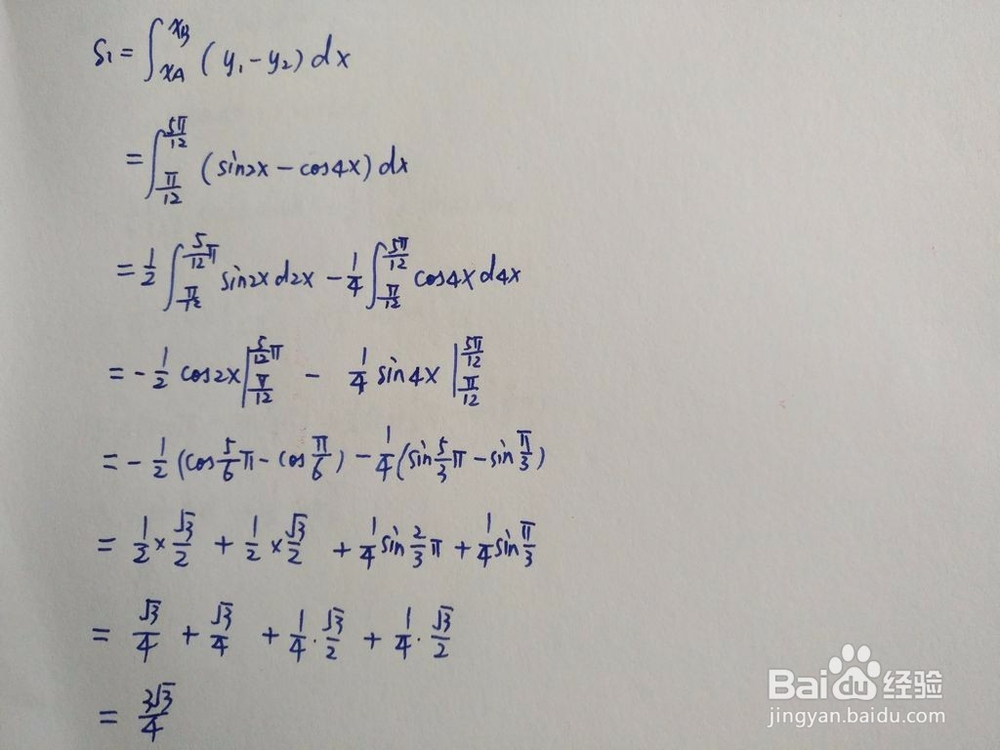 S₁ = ∫_{xA}^{xB} (y₁ - y₂) dx
= ∫_{π/12}^{5π/12} (sin2x - cos4x) dx
= 1/2 ∫_{π/12}^{5/12 π} sin2x d2x - 1/4 ∫_{π/12}^{5π/12} cos4x d4x
= - 1/2 cos2x |_{π/12}^{5/12 π} - 1/4 sin4x |_{π/12}^{5π/12}
= - 1/2 (cos 5/6 π - cos π/6) - 1/4 (sin 5/3 π - sin π/3)
= 1/2 × √3/2 + 1/2 × √3/2 + 1/4 sin 2/3 π + 1/4 sin π/3
= √3/4 + √3/4 + 1/4 · √3/2 + 1/4 · √3/2
= 3√3/4
Baidu 经验
jingyan.baidu.com